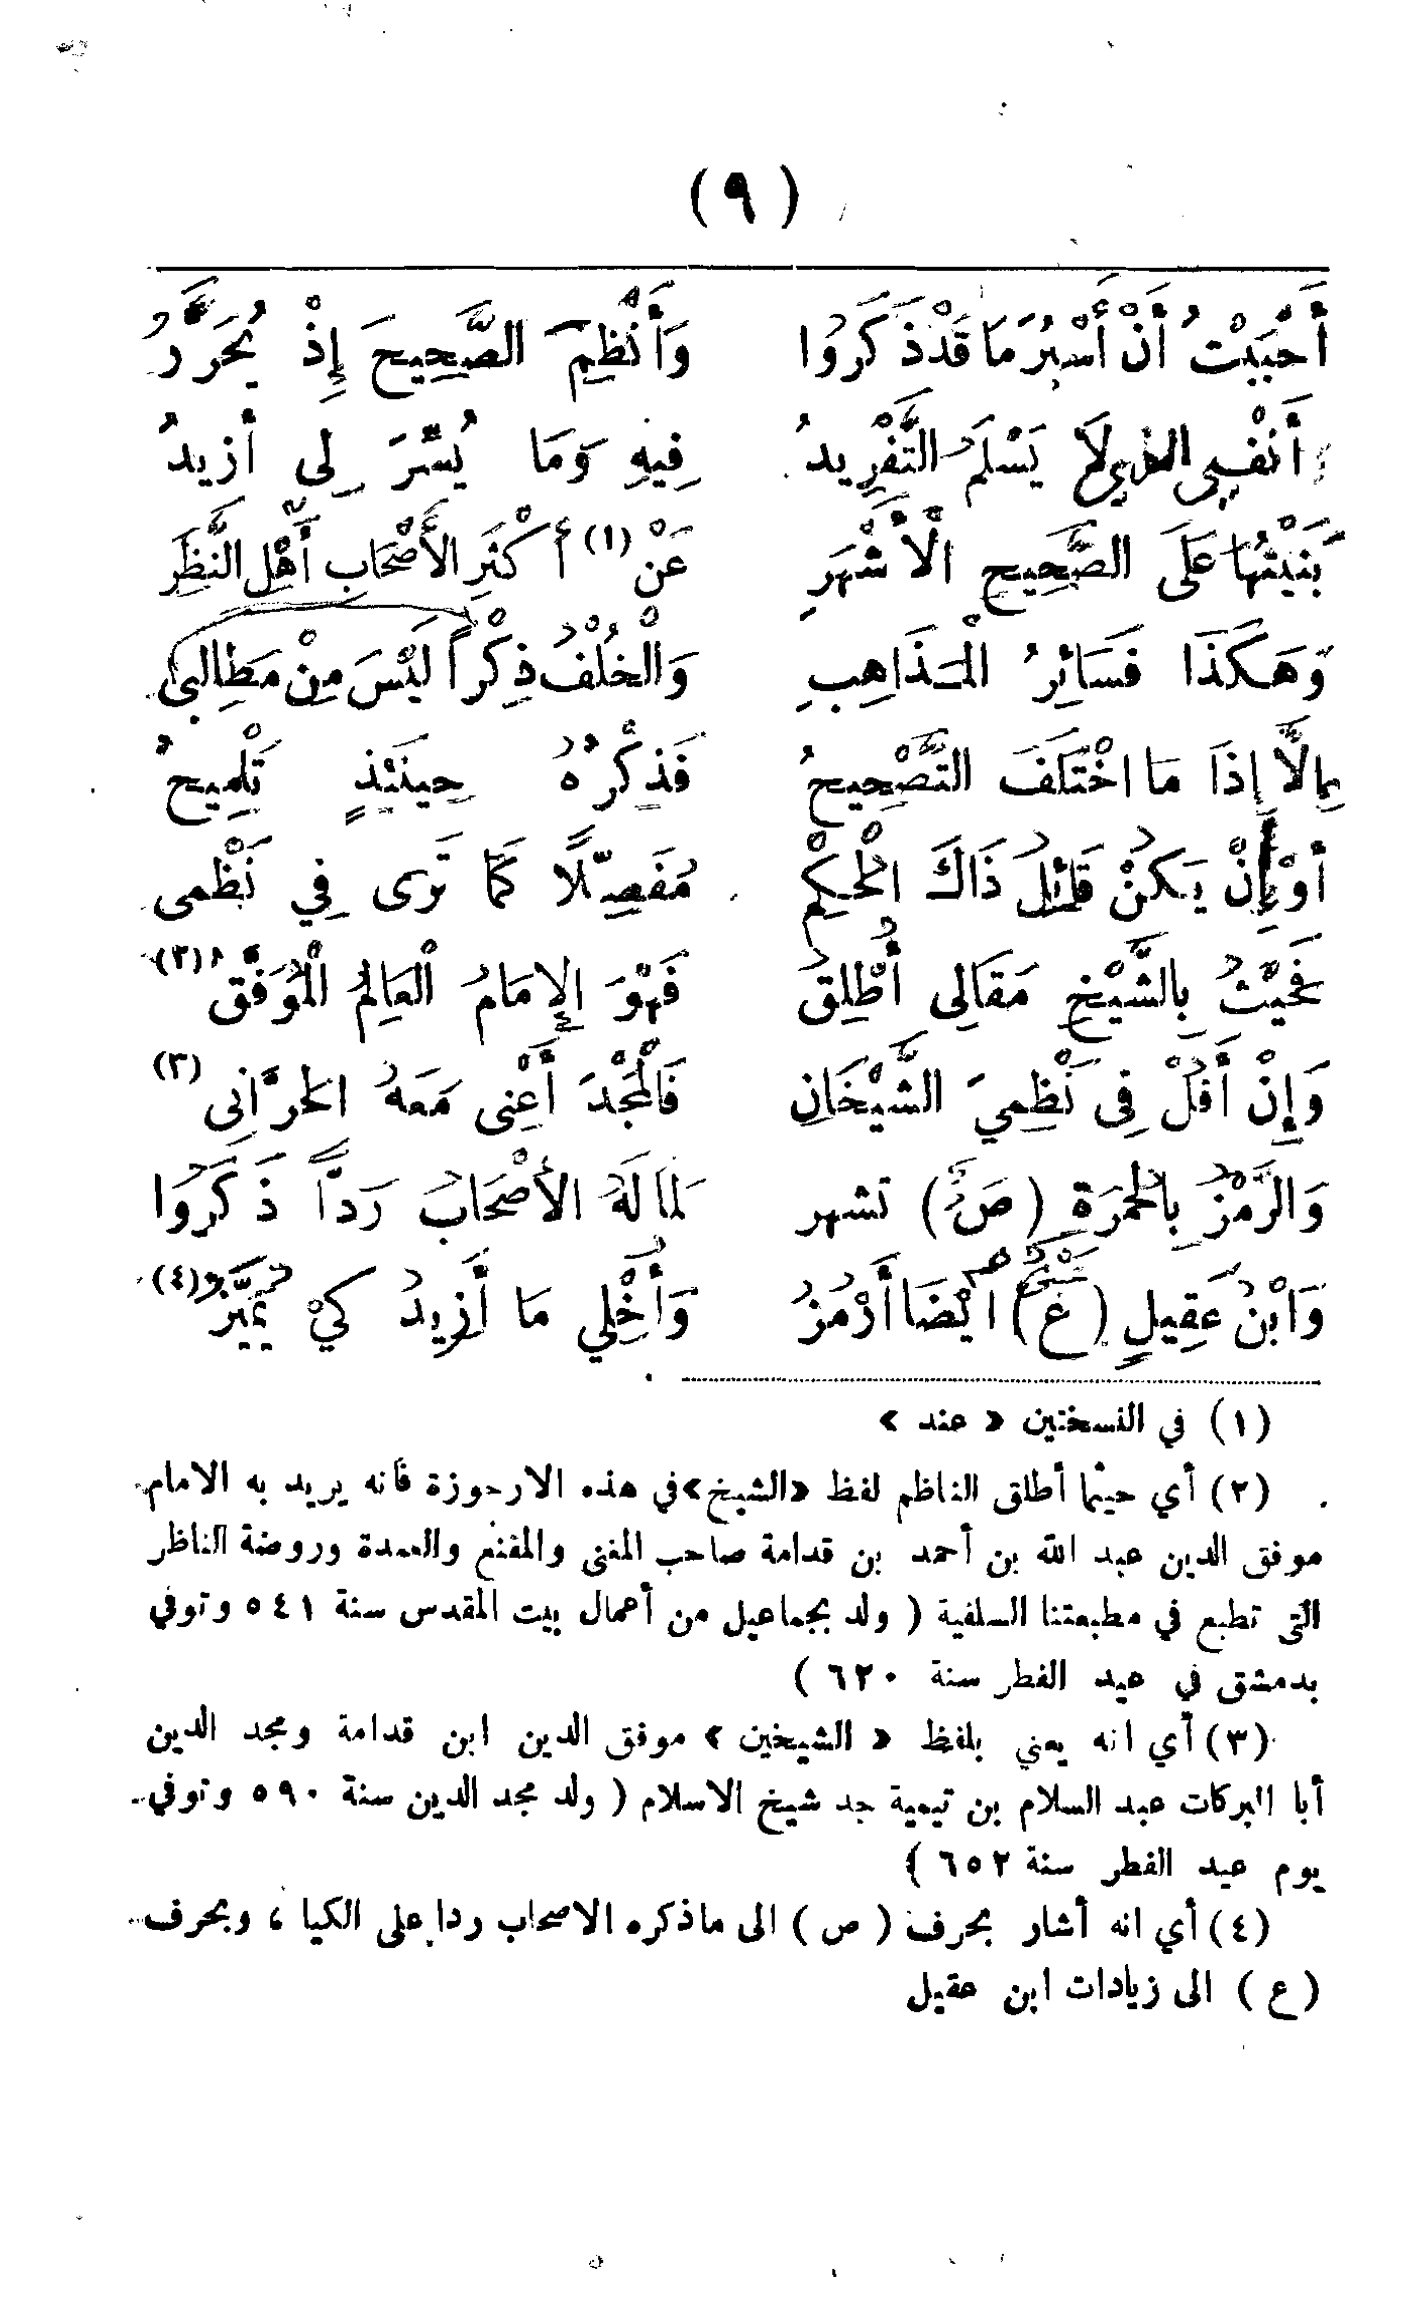 (٩)
أَحْبَبْتُ أَنْ أَسْبُرَ مَا قَدْ ذَكَرُوا وَأَنْظِمَ الصَّحِيحَ إِذْ يُحَرَّرُ
أَنْفِي الذي لَا يَسْلَمُ التَّفْرِيدُ فِيهِ وَمَا يُسِّرَ لِى أَزِيدُ
بَنَيْتُهَا عَلَى الصَّحِيحِ الْأَشْهَرِ عَنْ (١) أَكْثَرِ الأَصْحَابِ أَهْلِ النَّظَرِ
وَهَكَذَا فَسَائِرُ الْمَذَاهِبِ وَالْخُلْفُ ذِكْراً لَيْسَ مِنْ مَطَالِبى
إِلَّا إِذَا مَا اخْتَلَفَ التَّصْحِيحُ فَذِكْرُهُ حِينَئِذٍ تَلْمِيحُ
أَوْ إِنْ يَكُنْ قَائِلُ ذَاكَ الْحُكْمِ مُفَصِّلًا كَمَا تَرَى فِي نَظْمِى
فَحَيْثُ بِالشَّيْخِ مَقَالِى أُطْلِقُ فَهْوَ الإِمَامُ الْعَالِمُ الْمُوَفَّقُ (٢)
وَإِنْ أَقُلْ فِى نَظْمِيَ الشَّيْخَانِ فَالْمَجْدَ أَعْنِى مَعَهُ الحَرَّانِى (٣)
وَالرَّمْزُ بِالْحُمْرَةِ (صَ) تشهر لمَا لَهُ الأَصْحَابُ رَدًّا ذَكَرُوا
وَابْنُ عَقِيلٍ (ع) ايْضَا أَرْمُزُ وَأُخْلِي مَا أَزِيدُ كَيْ يُمَيَّزُ (٤)
(١) في النسختين «عند»
(٢) أي حيثما أطلق الناظم لفظ «الشيخ» في هذه الارجوزة فانه يريد به الامام
موفق الدين عبد الله بن أحمد بن قدامة صاحب المغنى والمقنع والعمدة وروضة الناظر
التى تطبع في مطبعتنا السلفية (ولد بجماعيل من أعمال بيت المقدس سنة ٥٤١ وتوفي
بدمشق في عيد الفطر سنة ٦٢٠)
(٣) أي انه يعني بلفظ «الشيخين» موفق الدين ابن قدامة ومجد الدين
أبا البركات عبد السلام بن تيمية جد شيخ الاسلام (ولد مجد الدين سنة ٥٩٠ وتوفي
يوم عيد الفطر سنة ٦٥٢)
(٤) أي انه أشار بحرف (ص) الى ماذكره الاصحاب ردا على الكيا، وبحرف
(ع) الى زيادات ابن عقيل